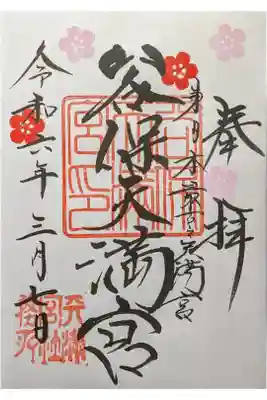 奉拝
東日本最古天満宮
谷保天満宮
令和六年三月七日